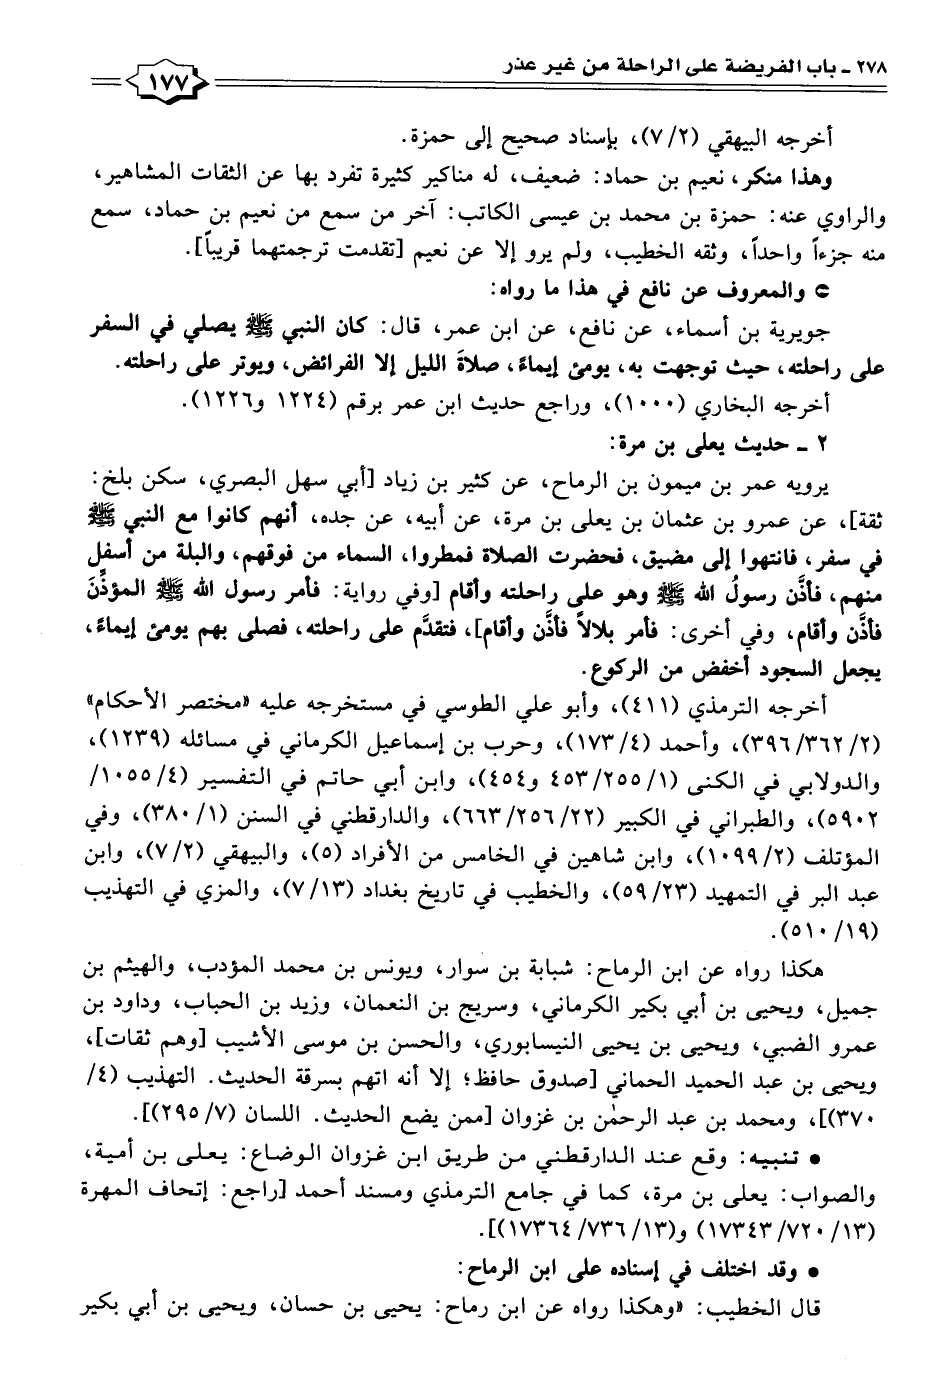 ٢٧٨ - باب الفريضة على الراحلة من غير عذر
١٧٧
أخرجه البيهقي (٧/٢)، بإسناد صحيح إلى حمزة.
وهذا منكر، نعيم بن حماد: ضعيف، له مناكير كثيرة تفرد بها عن الثقات المشاهير،
والراوي عنه: حمزة بن محمد بن عيسى الكاتب: آخر من سمع من نعيم بن حماد، سمع
منه جزءاً واحداً، وثقه الخطيب، ولم يرو إلا عن نعيم [تقدمت ترجمتهما قريباً].
⊂ والمعروف عن نافع في هذا ما رواه:
جويرية بن أسماء، عن نافع، عن ابن عمر، قال: كان النبي ﷺ يصلي في السفر
على راحلته، حيث توجهت به، يومئ إيماءً، صلاةَ الليل إلا الفرائض، ويوتر على راحلته.
أخرجه البخاري (١٠٠٠)، وراجع حديث ابن عمر برقم (١٢٢٤ و١٢٢٦).
٢ - حديث يعلى بن مرة:
يرويه عمر بن ميمون بن الرماح، عن كثير بن زياد [أبي سهل البصري، سكن بلخ:
ثقة]، عن عمرو بن عثمان بن يعلى بن مرة، عن أبيه، عن جده، أنهم كانوا مع النبي ﷺ
في سفر، فانتهوا إلى مضيق، فحضرت الصلاة فمطروا، السماء من فوقهم، والبلة من أسفل
منهم، فأذَّن رسولُ الله ﷺ وهو على راحلته وأقام [وفي رواية: فأمر رسول الله ﷺ المؤذِّنَ
فأذَّن وأقام، وفي أخرى: فأمر بلالاً فأذَّن وأقام]، فتقدَّم على راحلته، فصلى بهم يومئ إيماءً،
يجعل السجود أخفض من الركوع.
أخرجه الترمذي (٤١١)، وأبو علي الطوسي في مستخرجه عليه «مختصر الأحكام»
(٣٩٦/٣٦٢/٢)، وأحمد (١٧٣/٤)، وحرب بن إسماعيل الكرماني في مسائله (١٢٣٩)،
والدولابي في الكنى (٤٥٣/٢٥٥/١ و٤٥٤)، وابن أبي حاتم في التفسير (١٠٥٥/٤/
٥٩٠٢)، والطبراني في الكبير (٦٦٣/٢٥٦/٢٢)، والدارقطني في السنن (٣٨٠/١)، وفي
المؤتلف (١٠٩٩/٢)، وابن شاهين في الخامس من الأفراد (٥)، والبيهقي (٧/٢)، وابن
عبد البر في التمهيد (٥٩/٢٣)، والخطيب في تاريخ بغداد (٧/١٣)، والمزي في التهذيب
(٥١٠/١٩).
هكذا رواه عن ابن الرماح: شبابة بن سوار، ويونس بن محمد المؤدب، والهيثم بن
جميل، ويحيى بن أبي بكير الكرماني، وسريج بن النعمان، وزيد بن الحباب، وداود بن
عمرو الضبي، ويحيى بن يحيى النيسابوري، والحسن بن موسى الأشيب [وهم ثقات]،
ويحيى بن عبد الحميد الحماني [صدوق حافظ؛ إلا أنه اتهم بسرقة الحديث. التهذيب (٤/
٣٧٠)]، ومحمد بن عبد الرحمٰن بن غزوان [ممن يضع الحديث. اللسان (٢٩٥/٧)].
• تنبيه: وقع عند الدارقطني من طريق ابن غزوان الوضاع: يعلى بن أمية،
والصواب: يعلى بن مرة، كما في جامع الترمذي ومسند أحمد [راجع: إتحاف المهرة
(١٧٣٤٣/٧٢٠/١٣) و(١٧٣٦٤/٧٣٦/١٣)].
• وقد اختلف في إسناده على ابن الرماح:
قال الخطيب: «وهكذا رواه عن ابن رماح: يحيى بن حسان، ويحيى بن أبي بكير